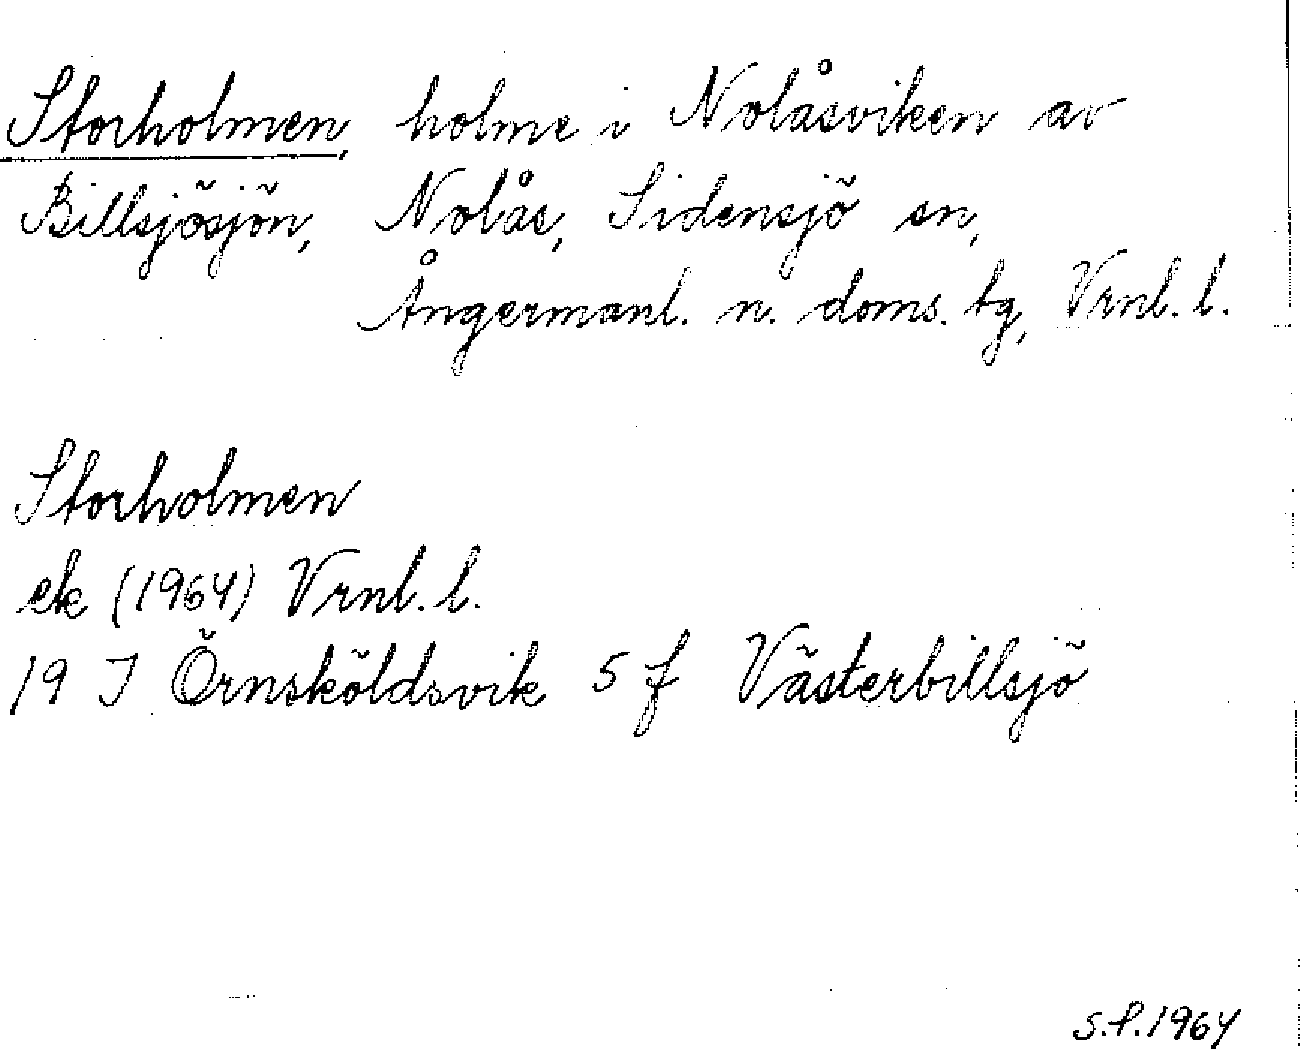 Storholmen, holme i Nolåsviken av
Billsjösjön, Nolås, Sidensjö sn,
Ångermanl. n. doms. tg, Vrnl. l.
Storholmen
ek (1964) Vrnl. l.
19 J Örnsköldsvik 5 f Västerbillsjö
S.P. 1964